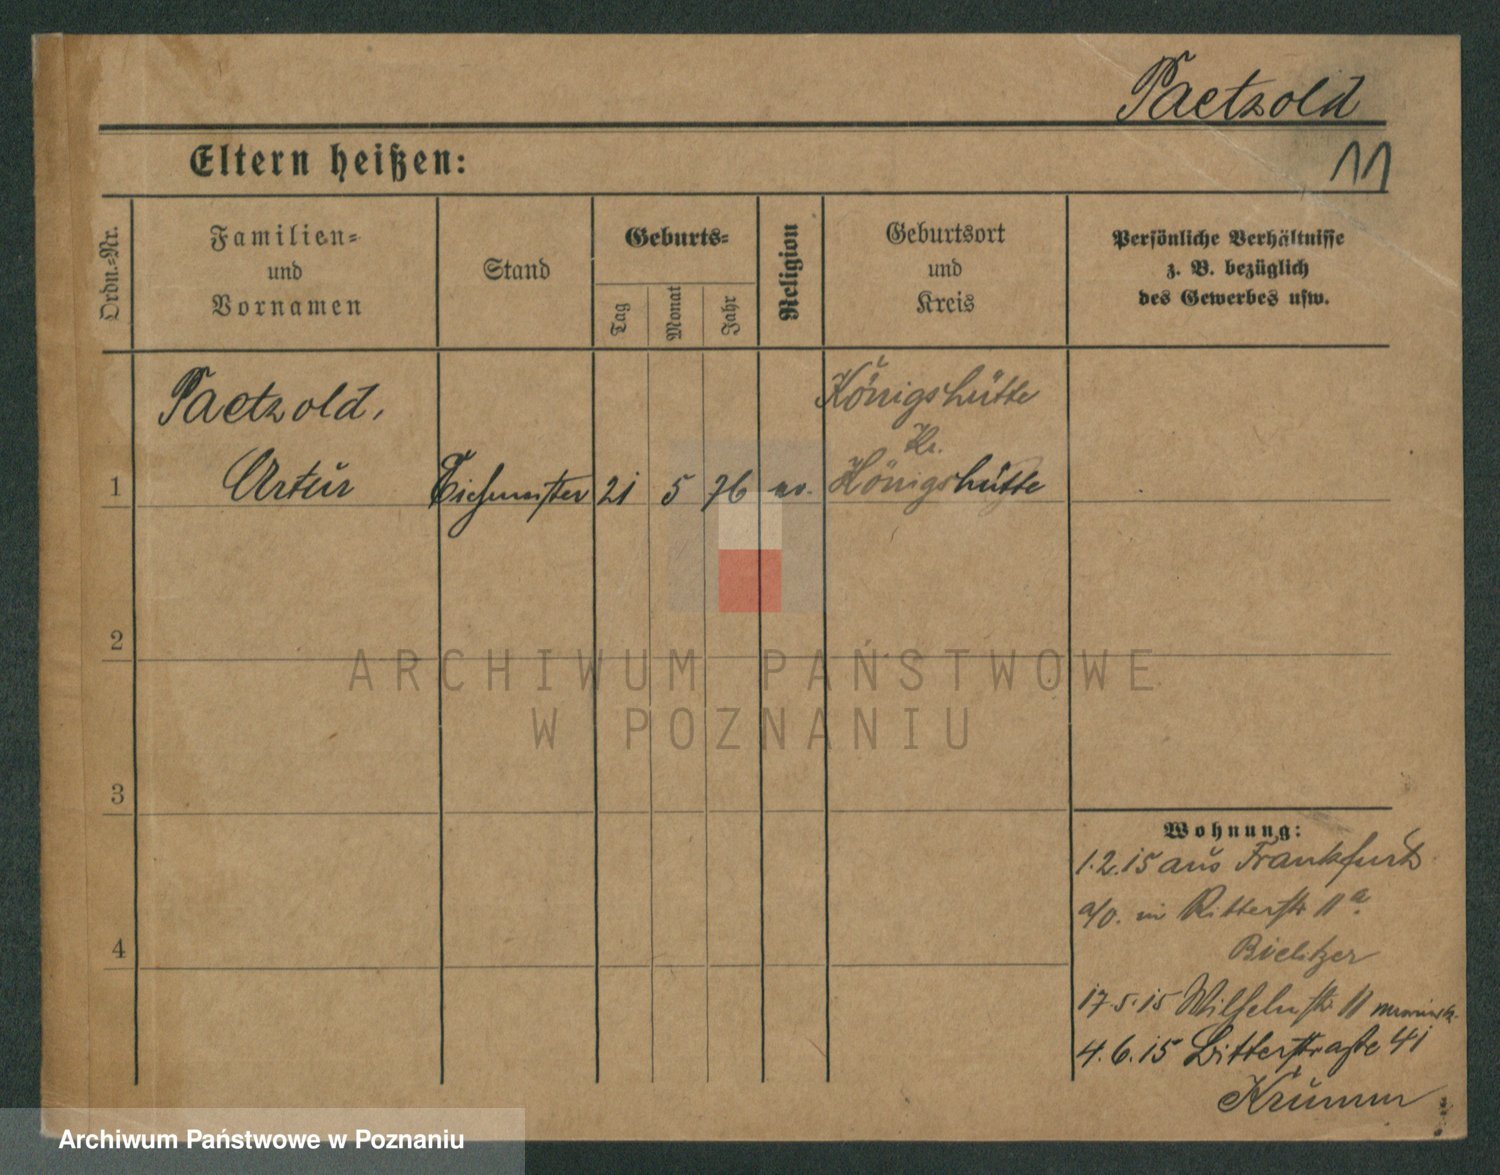 Paetzold
11
Eltern heißen:
Ordn.-Nr.
Familien- und Vornamen
Stand
Geburts-
Tag
Monat
Jahr
Religion
Geburtsort und Kreis
Persönliche Verhältnisse
z. B. bezüglich
des Gewerbes usw.
Paetzold,
Artur
Königshütte
Kr.
1
21 5 76 ev. Königshütte
2
3
4
Wohnung:
1.2.15 aus Frankfurt
a/O. in Ritterstr 11a.
Bielitzer
17.5.15 11
4.6.15 Bitterstraße 41
Krumm
ARCHIWUM PAŃSTWOWE
W POZNANIU
Archiwum Państwowe w Poznaniu